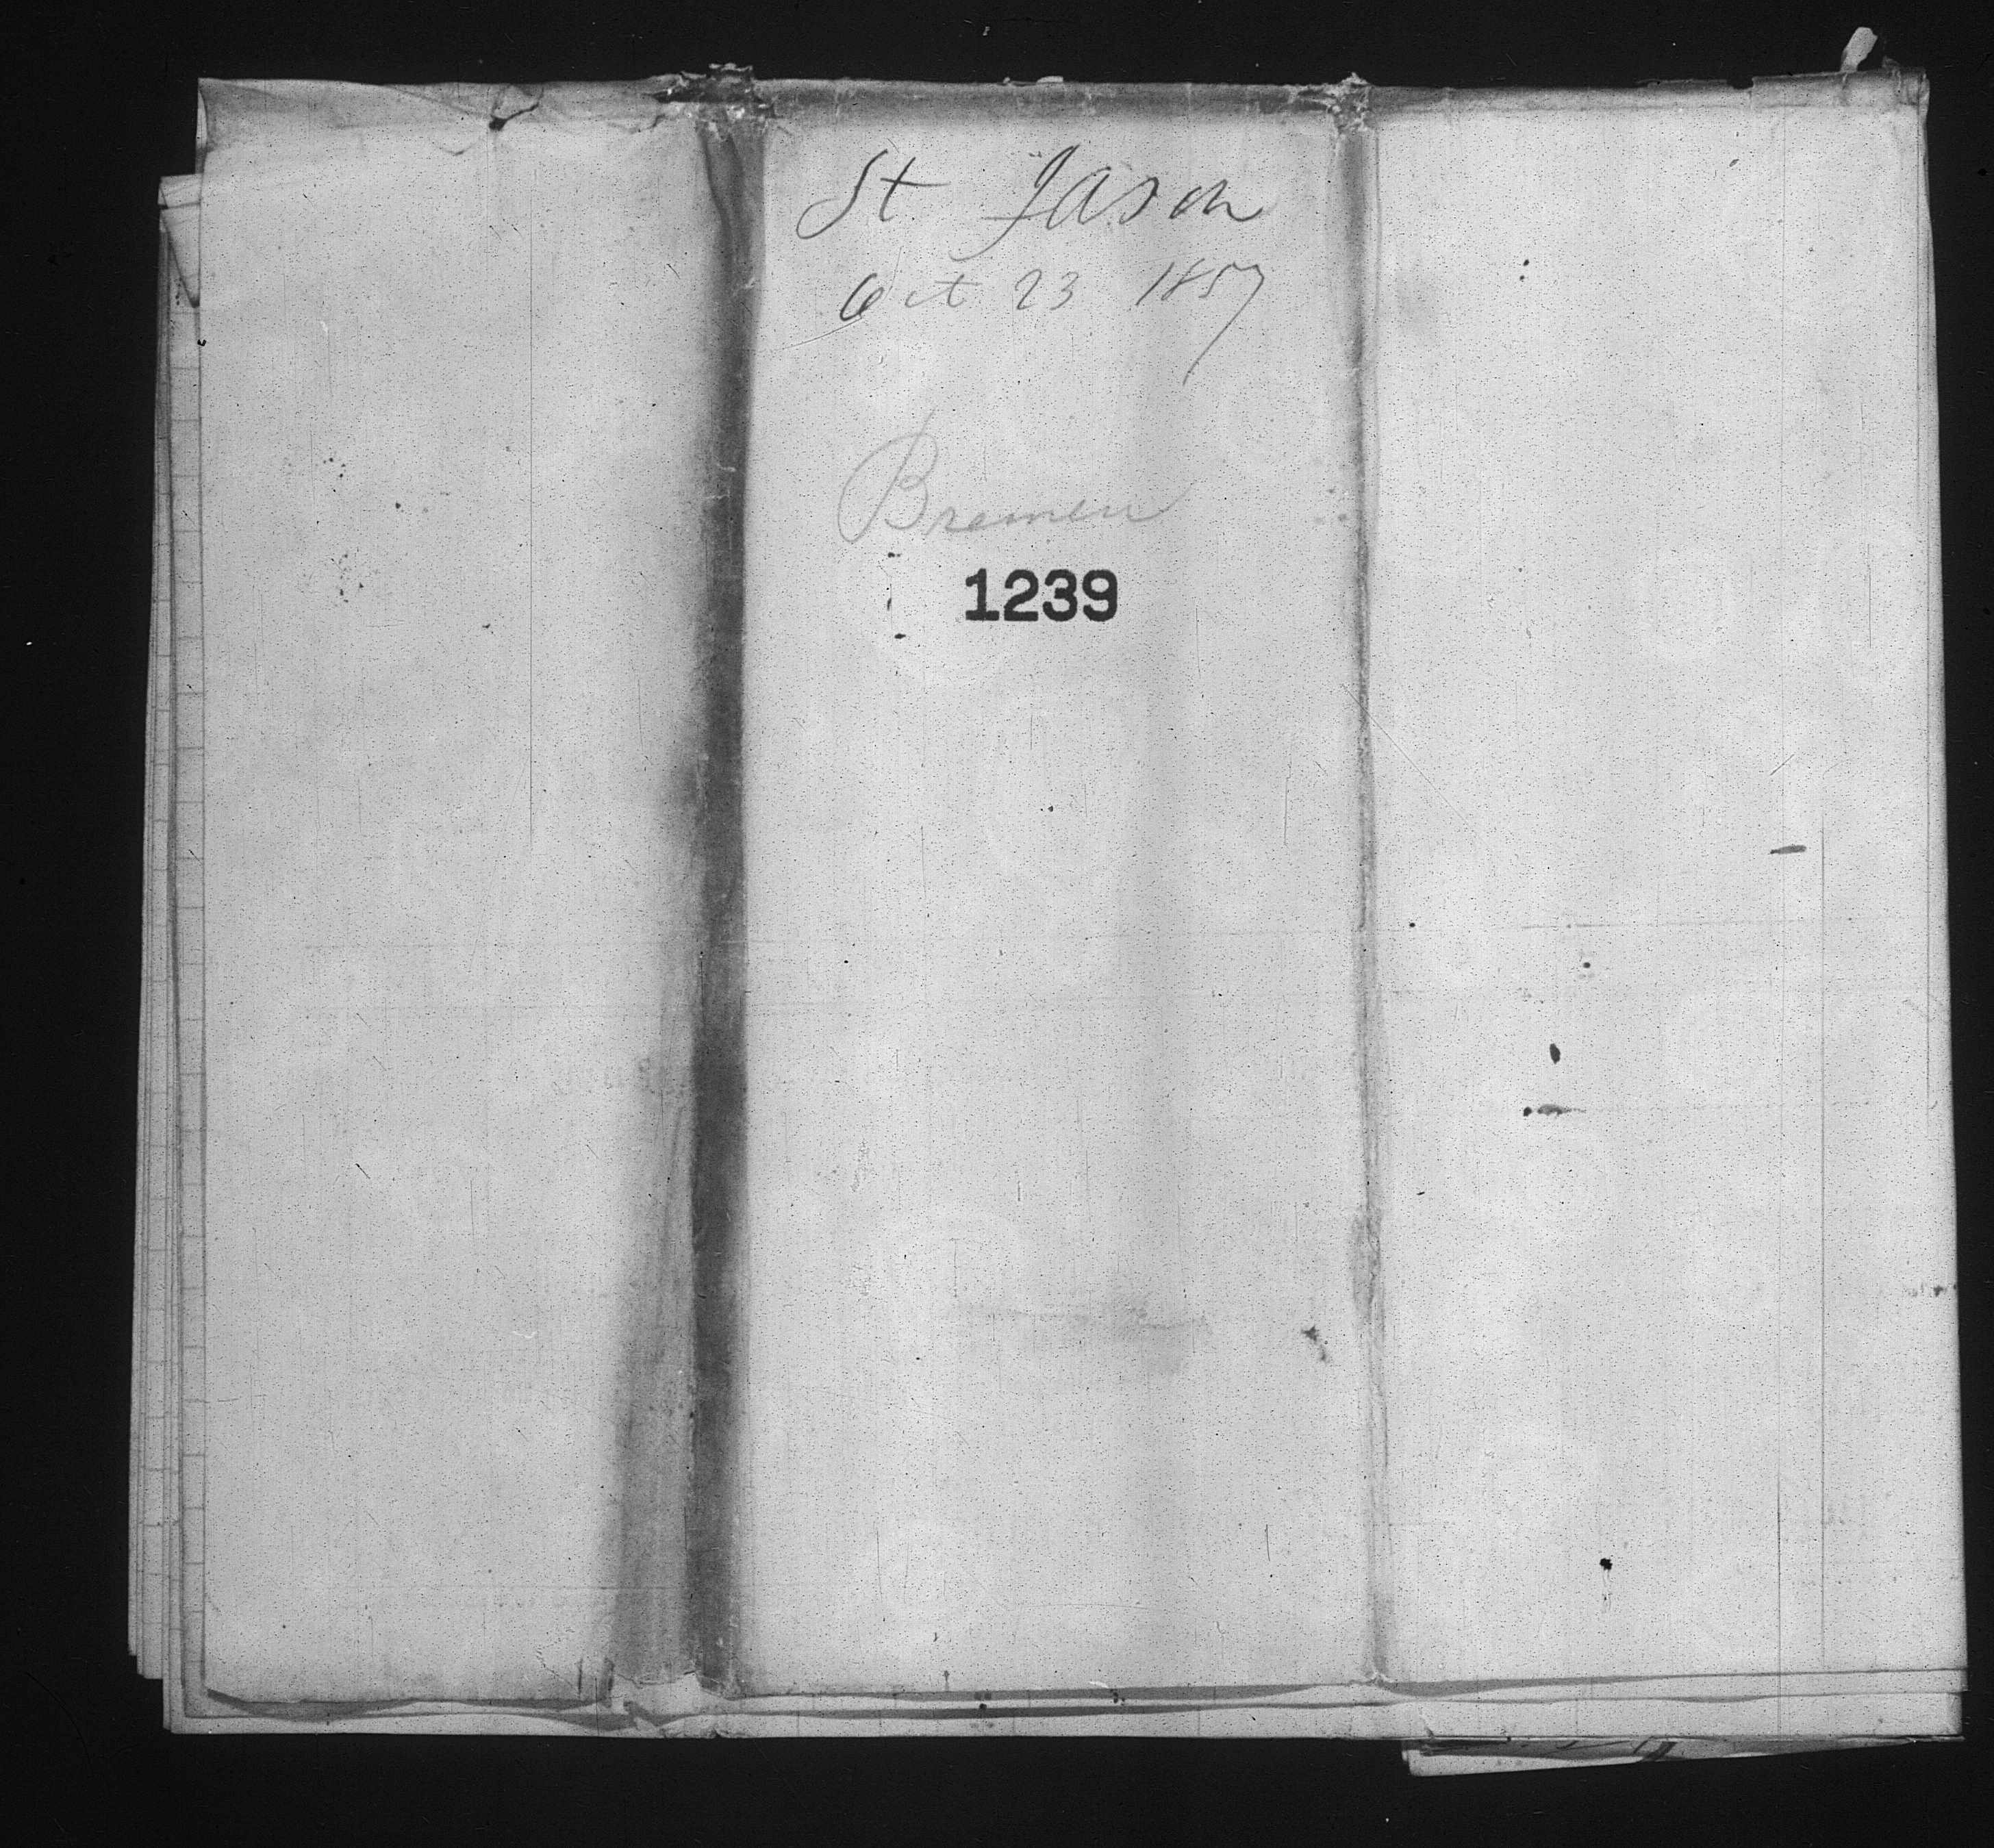 St Jason
Oct 23 1857
Bremen
1239